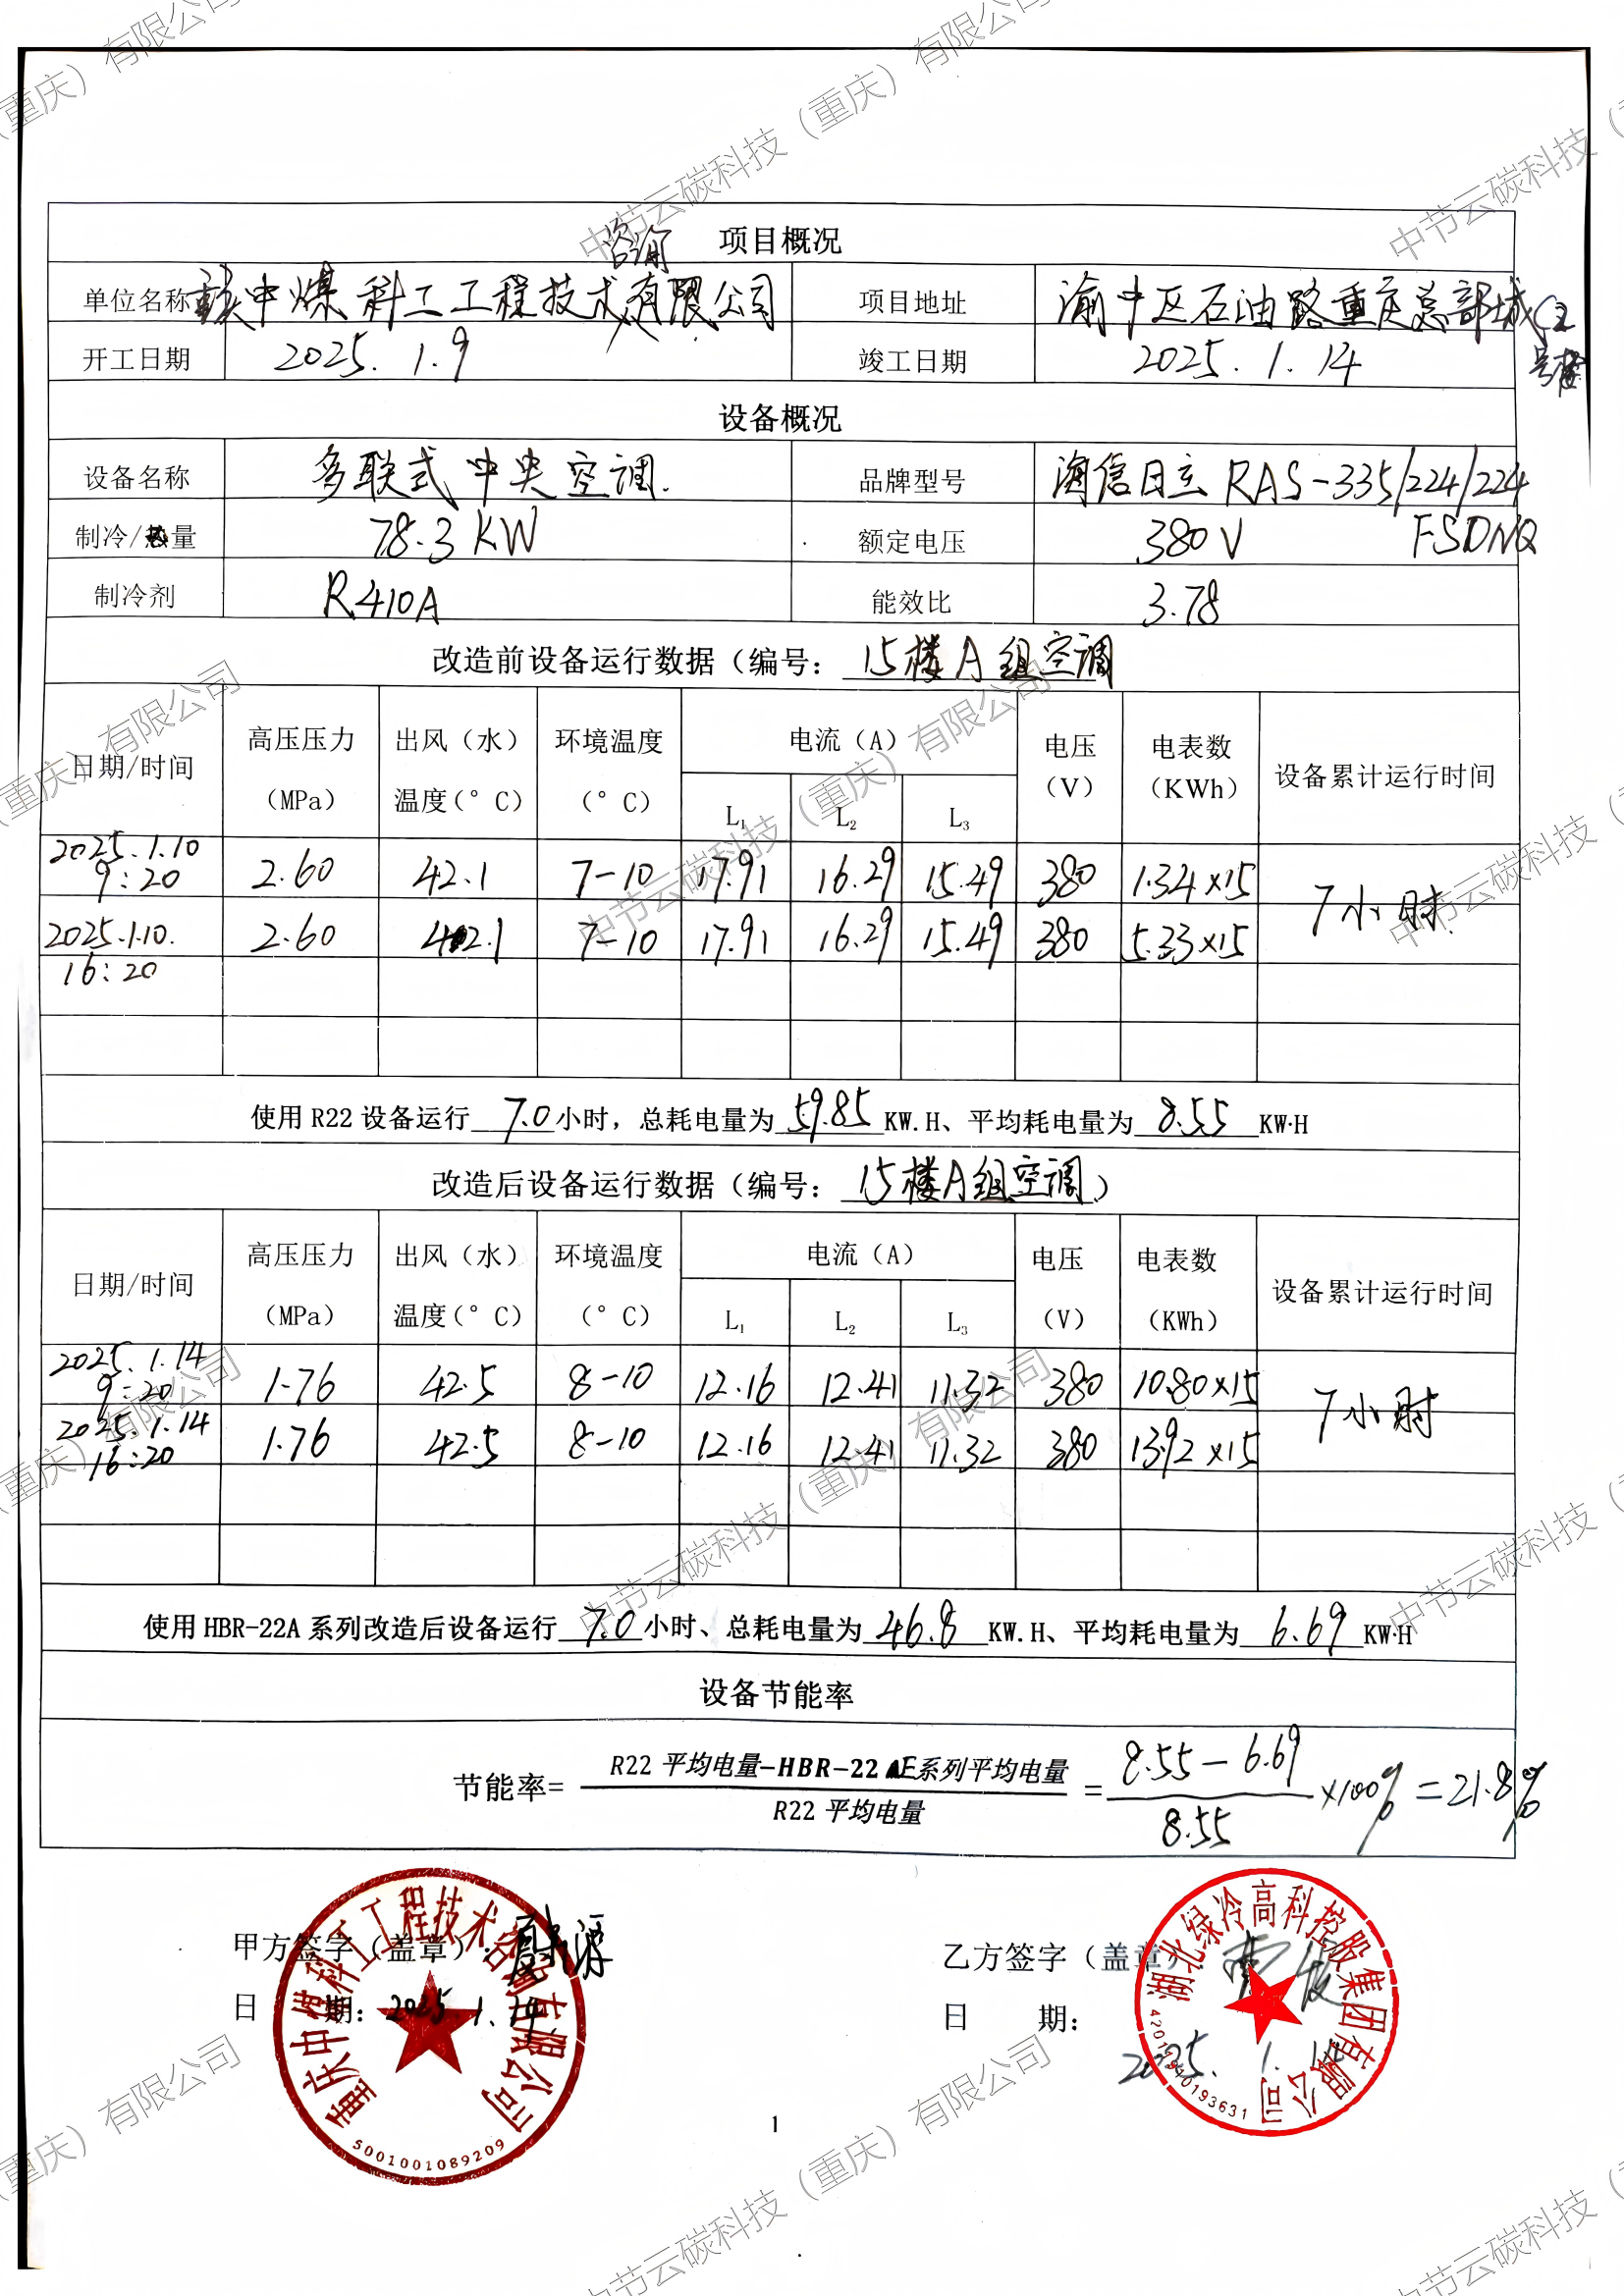 项目概况
单位名称 重庆中煤科工工程技术咨询有限公司 项目地址 渝中区石油路重庆总部城C2号楼
开工日期 2025.1.9 竣工日期 2025.1.14
设备概况
设备名称 多联式中央空调 品牌型号 海信日立RAS-335/224/224 FSDNQ
制冷/热量 78.3KW 额定电压 380V
制冷剂 R410A 能效比 3.78
改造前设备运行数据(编号: 15楼A组空调
日期/时间 高压压力(MPa) 出风(水)温度(°C) 环境温度(°C) 电流(A) L1 L2 L3 电压(V) 电表数(KWh) 设备累计运行时间
2025.1.10 9:20 2.60 42.1 7-10 17.91 16.29 15.49 380 1.34×15 7小时
2025.1.10. 16:20 2.60 42.1 7-10 17.91 16.29 15.49 380 5.33×15
使用R22设备运行7.0小时,总耗电量为59.85KW.H、平均耗电量为8.55KW·H
改造后设备运行数据(编号: 15楼A组空调)
日期/时间 高压压力(MPa) 出风(水)温度(°C) 环境温度(°C) 电流(A) L1 L2 L3 电压(V) 电表数(KWh) 设备累计运行时间
2025.1.14 9:20 1.76 42.5 8-10 12.16 12.41 11.32 380 10.80×15 7小时
2025.1.14 16:20 1.76 42.5 8-10 12.16 12.41 11.32 380 13.92×15
使用HBR-22A系列改造后设备运行7.0小时、总耗电量为46.8KW.H、平均耗电量为6.69KW·H
设备节能率
节能率= R22平均电量-HBR-22 E系列平均电量 / R22平均电量 = 8.55-6.69 / 8.55 ×100% =21.8%
甲方签字(盖章): 
日 期: 2025.1.14
重庆中煤科工工程技术咨询有限公司
5001001089209
乙方签字(盖章)
日 期:
2025.1.14
湖北绿冷高科控股集团有限公司
42011910193631
1
中节云碳科技(重庆)有限公司